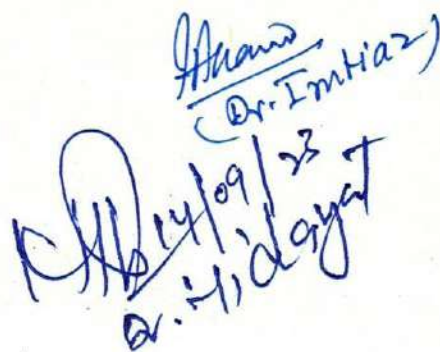 (Dr. Imtiaz)
14/09/23
Dr. Hidayat